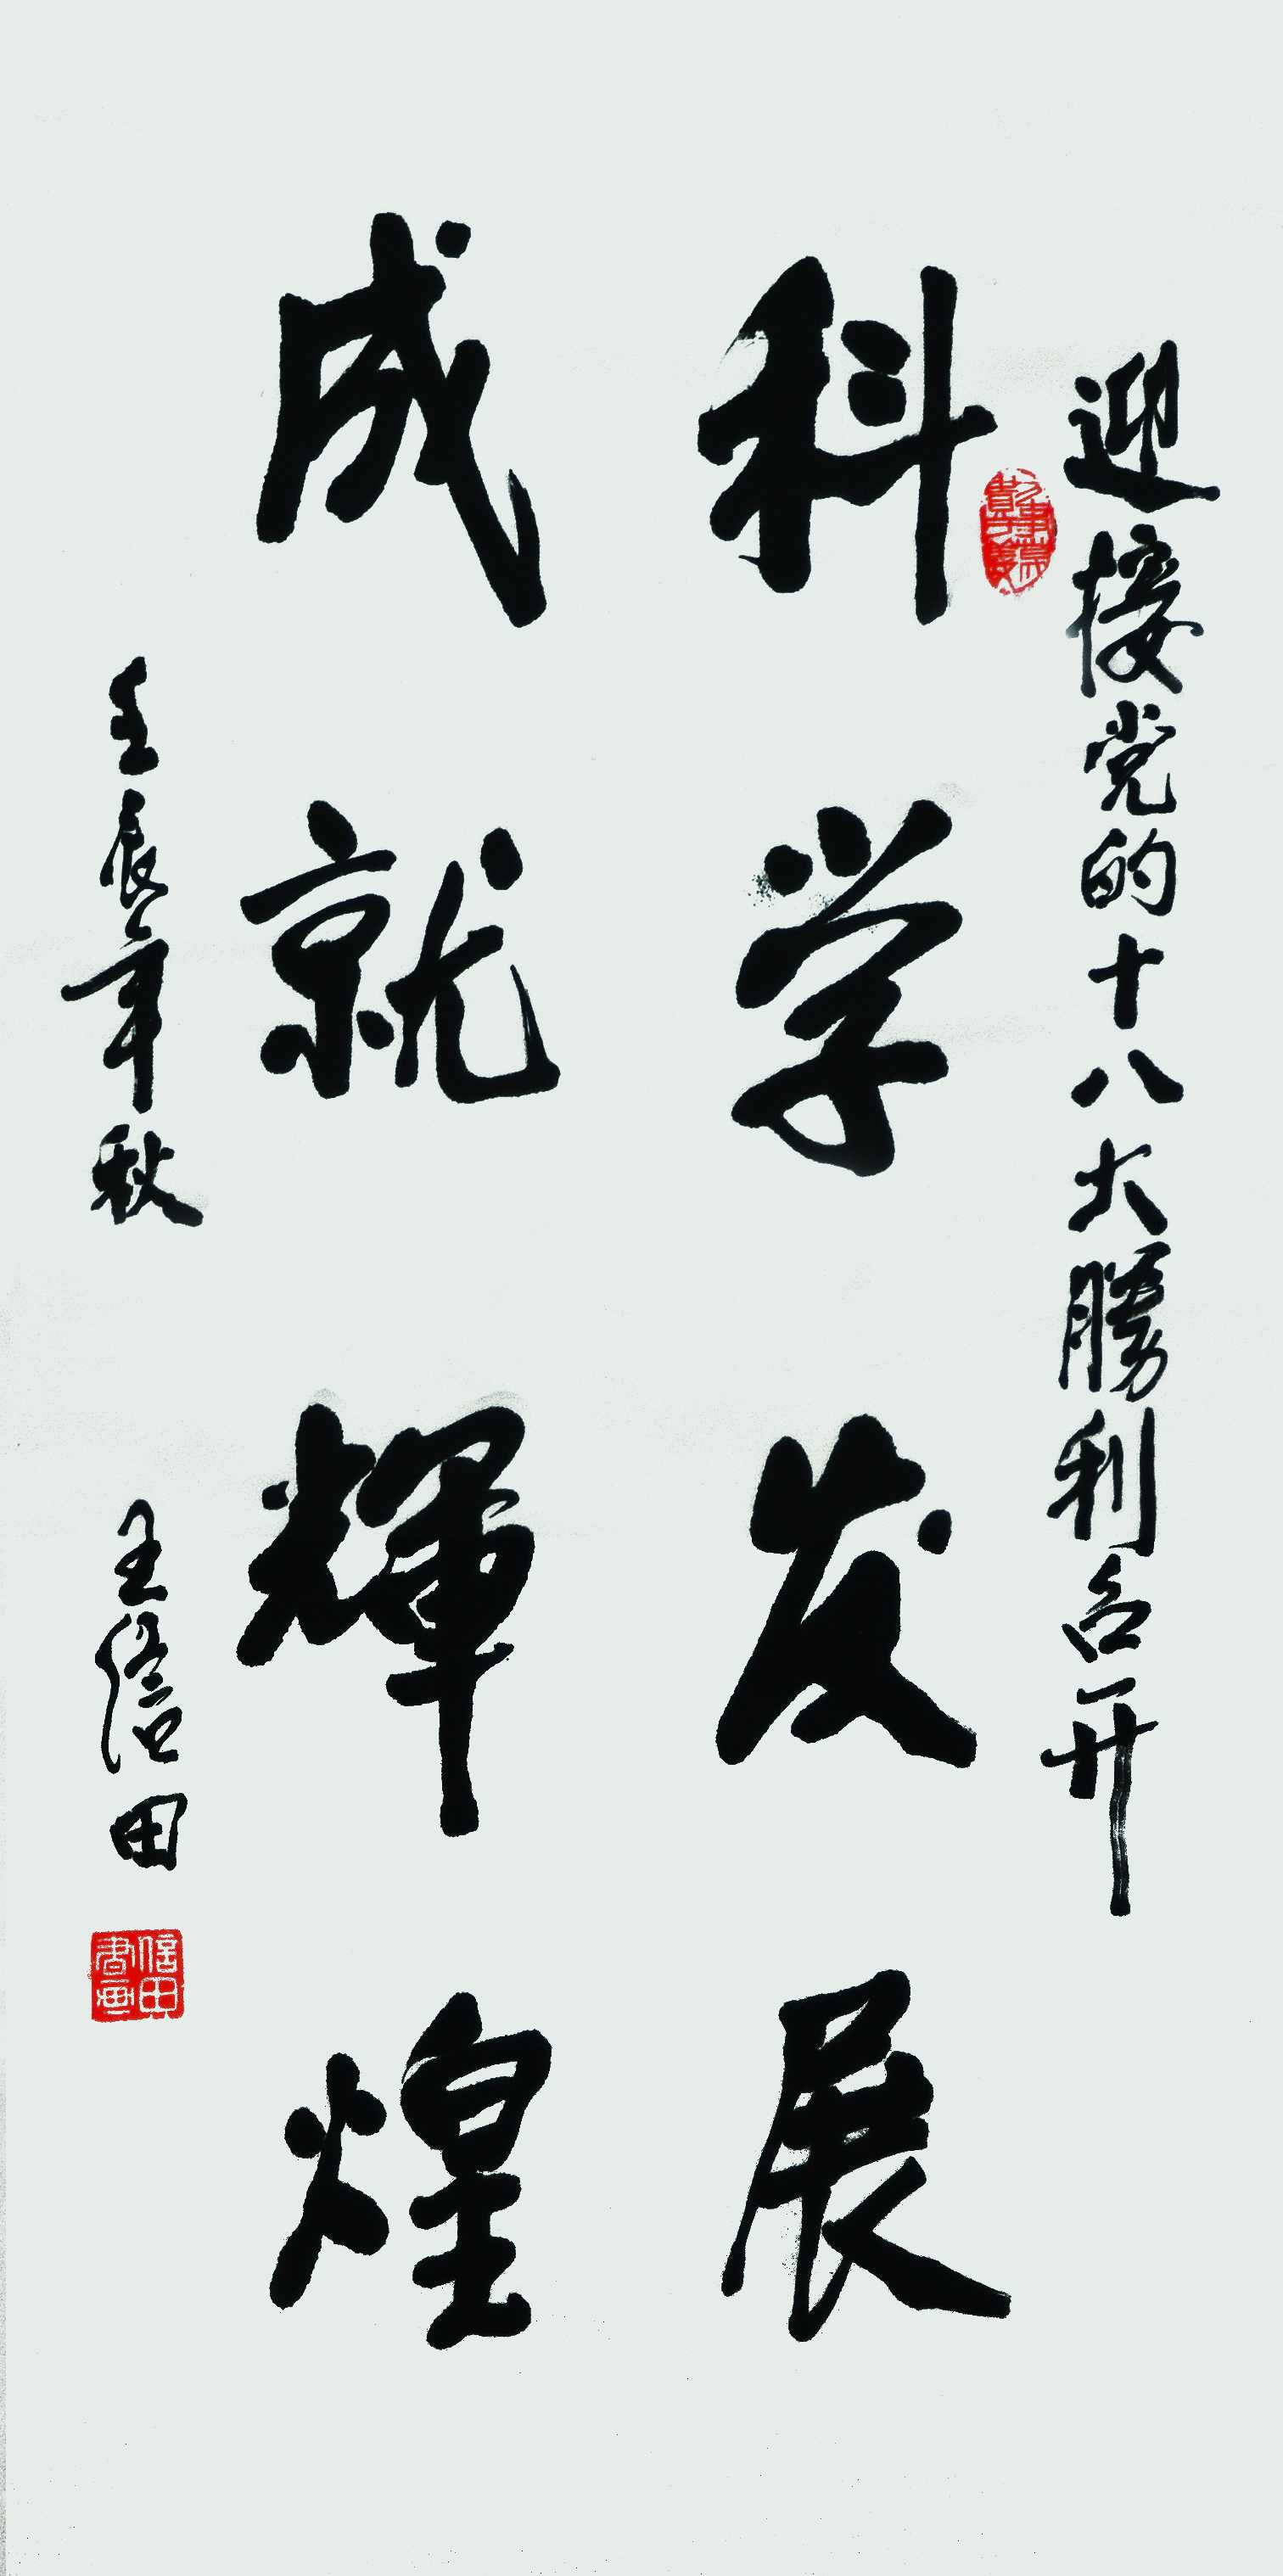 迎接党的十八大勝利召开
科学发展
成就輝煌
壬辰年秋
王信田
信田
書画